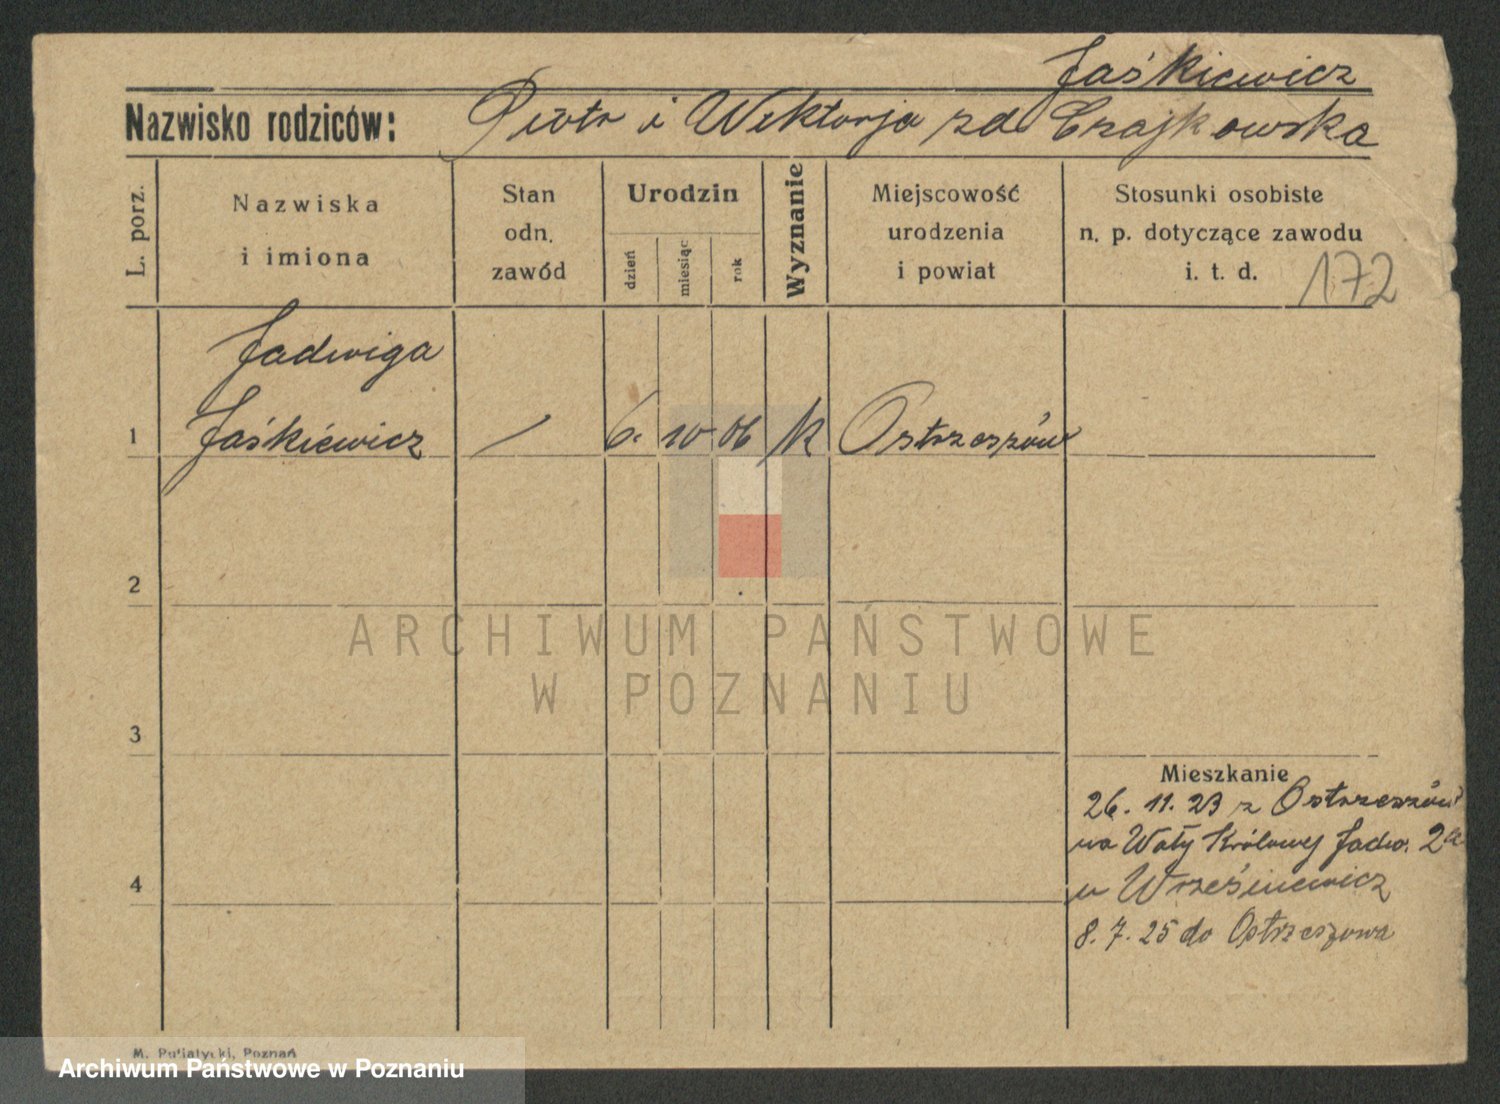 Jaśkiewicz
Nazwisko rodziców: Piotr i Wiktorja zd Czajkowska
L. porz.
Nazwiska
i imiona
Stan
odn.
zawód
Urodzin
dzień
miesiąc
rok
Wyznanie
Miejscowość
urodzenia
i powiat
Stosunki osobiste
n. p. dotyczące zawodu
i. t. d.
172
Jadwiga
1 Jaśkiewicz / 6. 10 06 k Ostrzeszów
2
ARCHIWUM PAŃSTWOWE
W POZNANIU
3
Mieszkanie
26. 11. 23 z Ostrzeszów
na Wały Królowej Jadw. 2a
u Wrześniewicz
4
8. 7. 25 do Ostrzeszowa
M. Putiatycki, Poznań
Archiwum Państwowe w Poznaniu